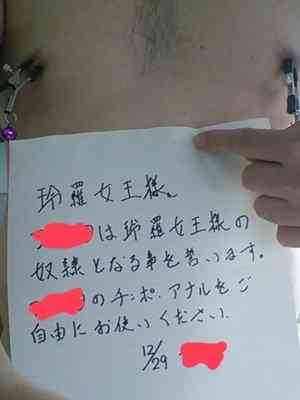 玲羅女王様。
は玲羅女王様の
奴隷となる事を誓います。
のチンポ、アナルをご
自由にお使いください
12/29